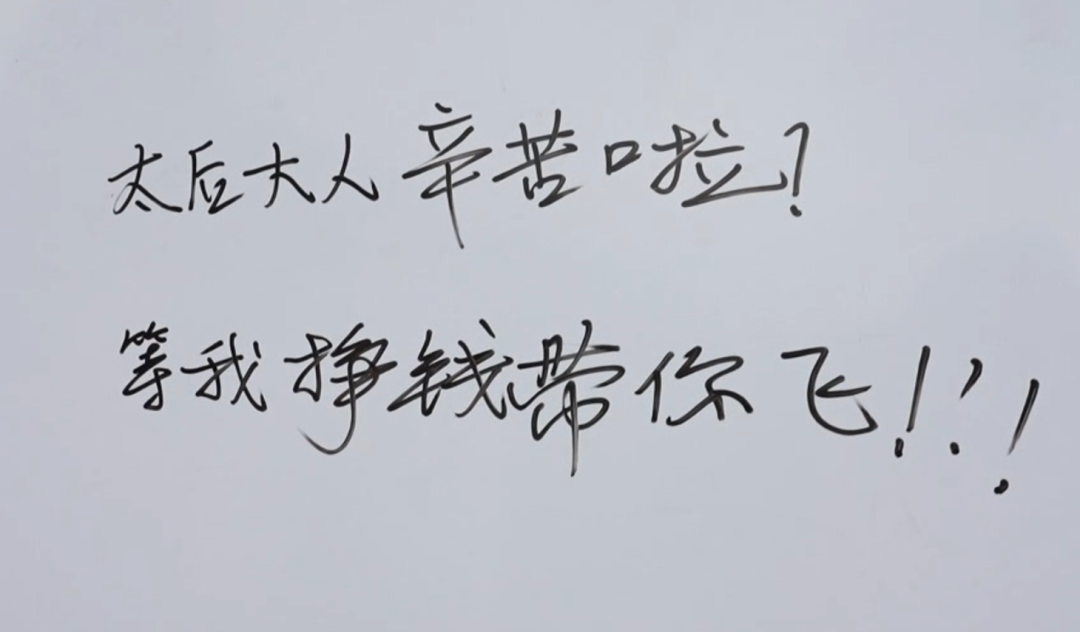 太后大人辛苦啦?
等我挣钱带你飞!!!